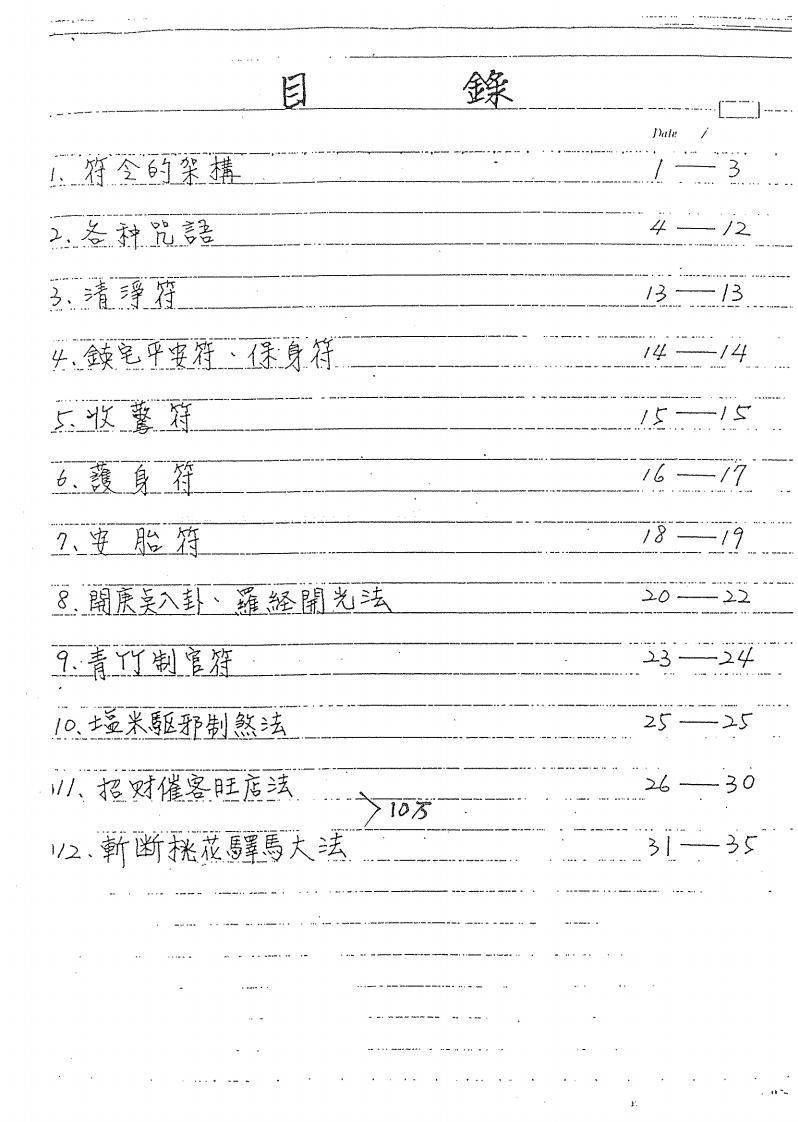 目 錄
Date /
1、符令的架構 1 — 3
2、各种咒語 4 — 12
3、清淨符 13 — 13
4、鎮宅平安符、保身符 14 — 14
5、收驚符 15 — 15
6、護身符 16 — 17
7、安胎符 18 — 19
8、開庚桌八卦、羅経開光法 20 — 22
9、青竹制官符 23 — 24
10、塩米駆邪制煞法 25 — 25
11、招财催客旺店法 26 — 30
>10万
12、斬断桃花驛馬大法 31 — 35